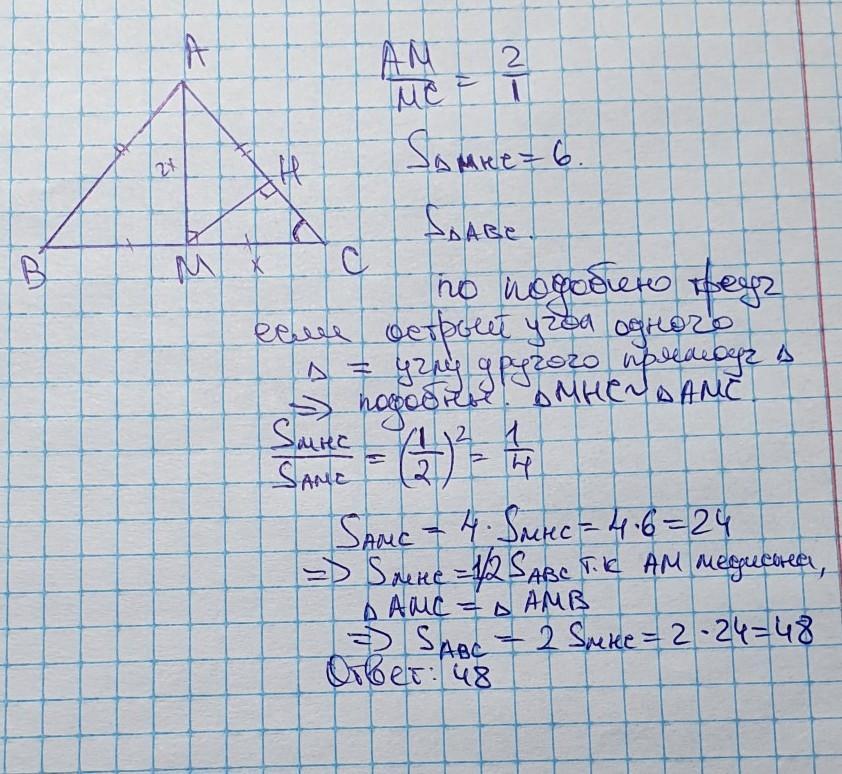 A
AM/MC = 2/1
2x
H
S△MHC = 6.
S△ABC.
B
M
x
C
по подобию
если острый угол одного
△ = углу другого прямоуг △
⇒ подобные. △MHC~△AMC
SMHC/SAMC = (1/2)² = 1/4
SAMC = 4·SMHC = 4·6=24
⇒ SMHC = 1/2 SABC т.к AM медиана,
△AMC = △AMB
⇒ SABC = 2 SMHC = 2·24=48
Ответ: 48